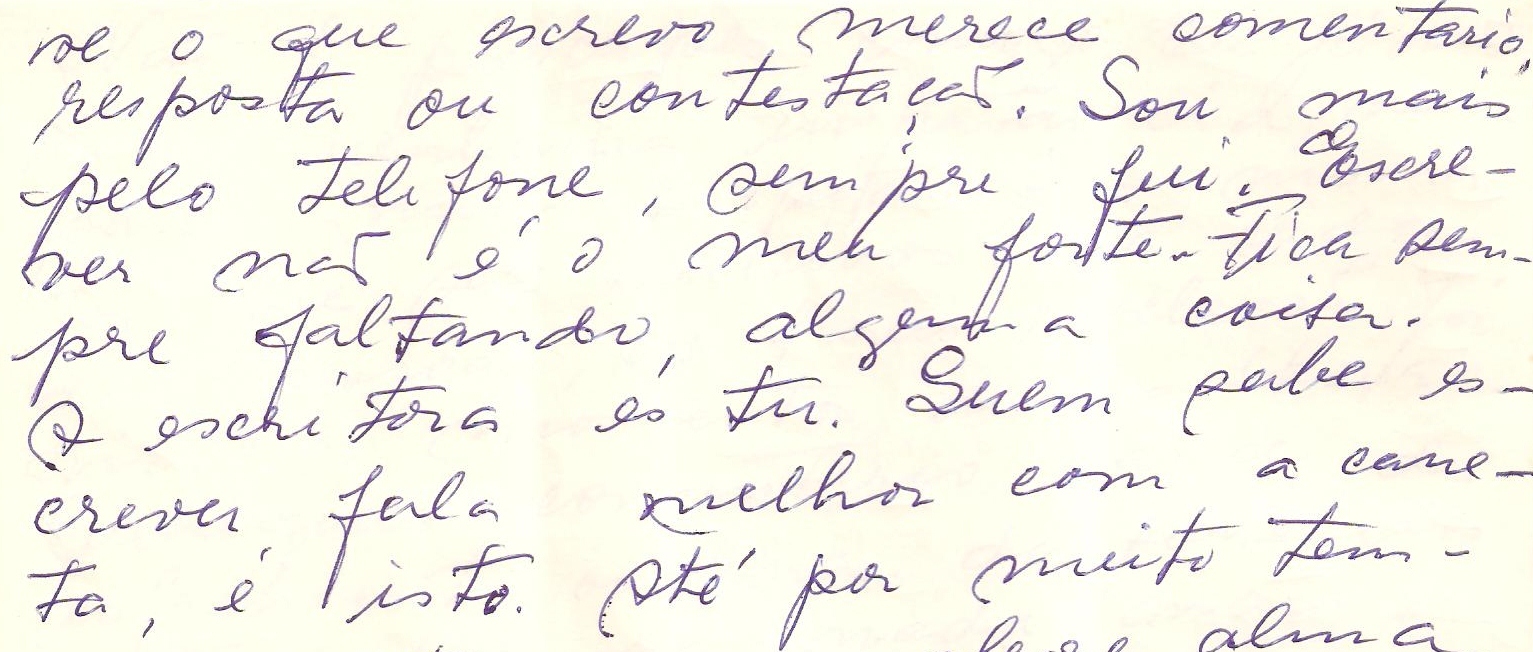 se o que escrevo merece comentário,
resposta ou contestação. Sou mais
pelo telefone, sempre fui. Escre-
ver não é o meu forte. Fica sem-
pre faltando, alguma coisa.
A escritora és tu. Quem sabe es-
crever, fala melhor com a cane-
ta, é isto. Até por muito tem-
alma